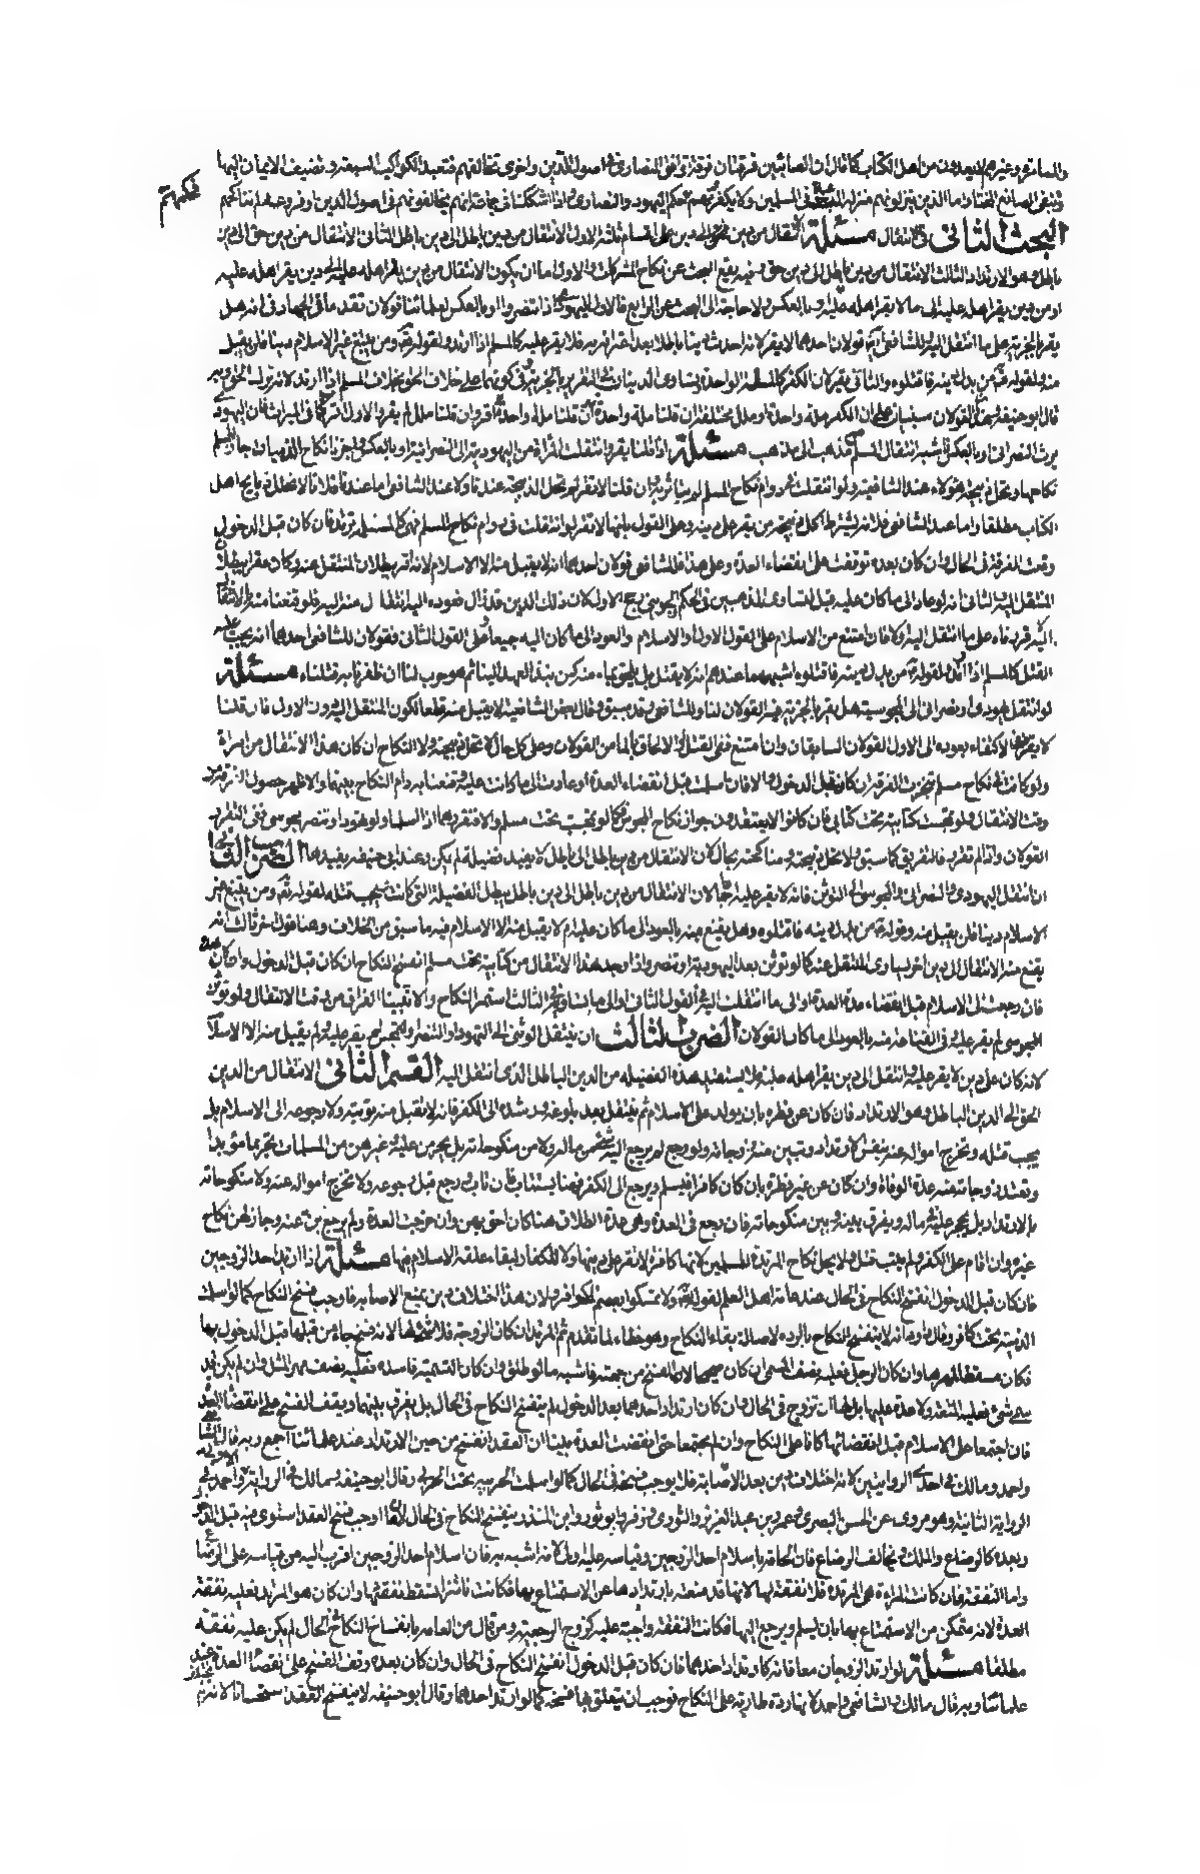 والسامرة وغيرهم لا يعدون من اهل الكتاب كما قال ان الصابئين فرقتان فرقة توافق النصارى في اصول الدين واخرى تخالفهم فتعبد الكواكب السبعة وتضيف الاثار اليها
وتنفي الصانع المختار واما الذين ينزلونهم منزلة في المسلمين ولا يكفرونهم حكم اليهود والنصارى واذا شككنا في جماعة انهم يخالفونهم في اصول الدين او فروعه لم نناكحهم
البحث الثاني في انتقال مسئلة الانتقال من دين الى دين على اقسام ثلثة الاول الانتقال من دين باطل الى دين باطل الثاني الانتقال من دين حق الى دين
باطل وهو الارتداد الثالث الانتقال من دين باطل الى دين حق وفيه يقع البحث عن نكاح المشركات والاول اما ان يكون الانتقال من دين يقر اهله عليه الى دين يقر اهله عليه
او من دين يقر اهله عليه الى ما لا يقر اهله عليه او بالعكس ولا حاجة الى البحث عن الرابع فالاول اليهودي اذا تنصر او بالعكس لعلمائنا قولان تقدما في الجهاد في انه هل
يقر بالجزية على ما انتقل اليه للشافعي قولان احدهما لا يقر لانه احدث دينا باطلا بعد اعترافه به فلا يقر عليه كالمسلم اذا ارتد ولقوله تع ومن يبتغ غير الاسلام دينا فلن يقبل
منه ولقوله من بدل دينه فاقتلوه والثاني يقر لان الكفر كالملة الواحدة
قال ابو حنيفة القولان مبنيان على ان الكفر ملة واحدة او ملل مختلفة ان قلنا ملة واحدة اقر وان قلنا ملل لم يقر والاول فان اليهود
يرث النصراني وبالعكس اشبه انتقال المسلم من مذهب الى مذهب مسئلة اذا قلنا يقر وانتقلت المراة من اليهودية الى النصرانية او بالعكس وجوزنا نكاح الذميات جاز للمسلم
نكاحها وتحل ذبيحته هؤلاء عند الشافعية ولو انتقلت في دوام نكاح المسلم لم يتاثر به وان قلنا لا تقر لم تحل الذبيحة عنده
الكتاب مطلقا واما عند الشافعي فلانه يشترط اكل ذبيحة من يقر على دينه وعلى القول بانها لا تقر لو انتقلت في دوام نكاح المسلم فهي كالمسلم ترتد فان كان قبل الدخول
وقعت الفرقة في الحال وان كان بعده توقفت على انقضاء العدة وعلى هذا فللشافعي قولان احدهما انه لا يقبل منه الا الاسلام لانه اقر ببطلان المنتقل عنه وكان مقرا ببطلان
المنتقل اليه والثاني انه لو عاد الى ما كان عليه قبل لتساوي المذهبين في الحكم
اليه قربناه على ما انتقل اليه اولا فان امتنع من الاسلام على القول الاول او الاسلام والعود الى ما كان اليه جميعا على القول الثاني فقولان للشافعي احدهما انه يجب عليه
القتل كالمسلم اذا ارتد لقوله من بدل دينه فاقتلوه اشبههما عندهم انه لا يقتل بل يلحق بمامنه كمن نبذ العهد الينا ثم هو حرب لنا ان ظفرنا به قتلناه مسئلة
لو انتقل يهودي او نصراني الى المجوسية هل يقر بالجزية فيه القولان لنا وللشافعي وقد سبق وقال بعض الشافعية لا يقبل منه قطعا لكون المنتقل اليه دون الاول فان قلنا
لا يقر ففي الاكتفاء بعوده الى الاول القولان السابقان وان امتنع ففي القتل او الالحاق بالمامن القولان وعلى كل حال لا تحل ذبيحته ولا النكاح ان كان هذا الانتقال من امراة
ولو كانت في نكاح مسلم تنجزت الفرقة ان كان قبل الدخول والا فان اسلمت قبل انقضاء العدة او عادت الى ما كانت عليه وقنعنا به دام النكاح بينهما والا ظهر حصول الفرقة من
وقت الانتقال ولو تمجست كتابية تحت كتابي فان كانوا لا يعتقدون جواز نكاح المجوس فكما لو تمجست تحت مسلم والا فنقرهما اذا اسلما ولو تهود او تنصر مجوسي ففي التقرير
القولان واذا لم نقر به فالتفريق كما سبق ولا تحل ذبيحته ومناكحته بحال لان الانتقال من دين باطل الى باطل لا يفيد فضيلة لم يكن وعند ابي حنيفة يفيدها الضرب الثاني
ان انتقل اليهودي والنصراني والمجوسي الى التوثن فانه لا يقر عليه اجماعا لان الانتقال من دين باطل الى دين باطل يبطل الفضيلة التي كانت فيجب قتله لقوله تع ومن يبتغ غير
الاسلام دينا فلن يقبل منه وقوله من بدل دينه فاقتلوه وهل يقنع منه بالعود الى ما كان عليه ام لا يقبل منه الا الاسلام فيه ما سبق من الخلاف وهنا قول اخر ثالث انه
يقنع منه الانتقال الى دين اخر يساوي المنتقل عنه كما لو توثن بعد اليهودية او تنصر واذا وجد هذا الانتقال من كتابية تحت مسلم انفسخ النكاح ان كان قبل الدخول وان كان بعده
فان رجعت الى الاسلام قبل انقضاء مدة العدة او الى ما انتقلت اليه على القول الثاني او الى ما يساويه على الثالث استمر النكاح والا تبينا الفراق من وقت الانتقال ولو توثن
المجوسي لم يقر عليه وفي القناعة منه بالعود الى ما كان القولان الضرب الثالث ان ينتقل الوثني الى التهود او التنصر او التمجس لم يقر عليه ولم يقبل منه الا الاسلام
لانه كان على دين لا يقر عليه وانتقل الى دين يقر اهله عليه فلا يستفيد هذه الفضيلة من الدين الباطل الذي انتقل اليه القسم الثاني الانتقال من الدين
الحق الى الدين الباطل وهو الارتداد فان كان عن فطرة بان يولد على الاسلام ثم ينتقل بعد بلوغه ورشده الى الكفر فانه لا يقبل منه توبته ولا رجوعه الى الاسلام بل
يجب قتله وتخرج امواله عنه بنفس الارتداد وتبين منه زوجاته ولو رجع لم يرجع اليه شيء من ماله ولا من منكوحاته بل يحرمن عليه وغيرهن من المسلمات تحريما مؤبدا
وتعتد زوجاته منه عدة الوفاة وان كان عن غير فطرة بان كان كافرا فيسلم ويرجع الى الكفر فهذا يستتاب فان تاب ورجع قبل رجوعه ولا تخرج امواله عنه ولا منكوحاته
بالارتداد بل يحجر عليه في ماله ويفرق بينه وبين منكوحاته فان رجع في العدة وهي عدة الطلاق هنا كان احق بهن وان خرجت العدة ولم يرجع بن عنه وجاز لهن نكاح
غيره وان اقام على الكفر ولم يتب قتل ولا يحل نكاح المرتدة للمسلمين لانها كافرة لا تقر على دينها ولا للكفار لبقاء علقة الاسلام فيها مسئلة اذا ارتد احد الزوجين
فان كان قبل الدخول انفسخ النكاح في الحال عند عامة اهل العلم لقوله تع ولا تمسكوا بعصم الكوافر ولان هذا اختلاف دين يمنع الاصابة فاوجب فسخ النكاح كما لو اسلمت
الذمية تحت كافر وقال داود انه لا ينفسخ النكاح بالردة لاصالة بقاء النكاح وهو خطاء لما تقدم ثم المرتد ان كان الزوجة فلا شيء لها لانه فسخ جاء من قبلها قبل الدخول بها
فكان مسقطا لمهرها وان كان الرجل فعليه نصف المسمى ان كان صحيحا لان الفسخ من جهته فاشبه ما لو طلق وان كان التسمية فاسدة فعليه نصف مهر المثل وان لم يكن قد
سمى شيئا فعليه المتعة ولا عدة عليها بل لها ان تزوج في الحال وان كان ارتداد احدهما بعد الدخول لم ينفسخ النكاح في الحال بل يفرق بينهما ويقف الفسخ على انقضاء العدة
فان اجتمعا على الاسلام قبل انقضائها كانا على النكاح وان لم يجتمعا حتى انقضت العدة تبينا ان العقد انفسخ من حين الارتداد عند علمائنا اجمع وبه قال الشافعي
واحمد ومالك في احدى الروايتين لانه اختلاف دين بعد الاصابة فلا يوجب فسخه في الحال كما لو اسلمت الحربية تحت الحربي وقال ابو حنيفة ومالك في الرواية
الرواية الثانية وهو مروي عن الحسن البصري وعمر بن عبد العزيز والثوري وزفر وابو ثور وابن المنذر ينفسخ النكاح في الحال لان ما اوجب فسخ العقد استوى فيه قبل الدخول
وبعده كالرضاع والملك ويخالف الرضاع فان الحاقه باسلام احد الزوجين وقياسه عليه اولى لانه اشبه به فان اسلام احد الزوجين اقرب اليه من قياسه على الرضاع
واما النفقة فان كانت المراة هي المرتدة فلا نفقة لها لانها قد منعته بارتدادها عن الاستمتاع بها فكانت ناشزا تسقط نفقتها وان كان هو المرتد فعليه نفقة
العدة لانه متمكن من الاستمتاع بها بان يسلم ويرجع اليها فكانت النفقة واجبة عليه كزوج الرجعية ومن قال من العامة بانفساخ النكاح في الحال لم يكن عليه نفقة
مطلقا مسئلة لو ارتد الزوجان معا فانه كارتداد احدهما فان كان قبل الدخول انفسخ النكاح في الحال وان كان بعده وقف الفسخ على انقضاء العدة عند
علمائنا وبه قال مالك والشافعي واحمد لانها ردة طارية على النكاح فوجب ان يتعلق بها فسخه كما لو ارتد احدهما وقال ابو حنيفة لا ينفسخ العقد استحسانا لانه لم